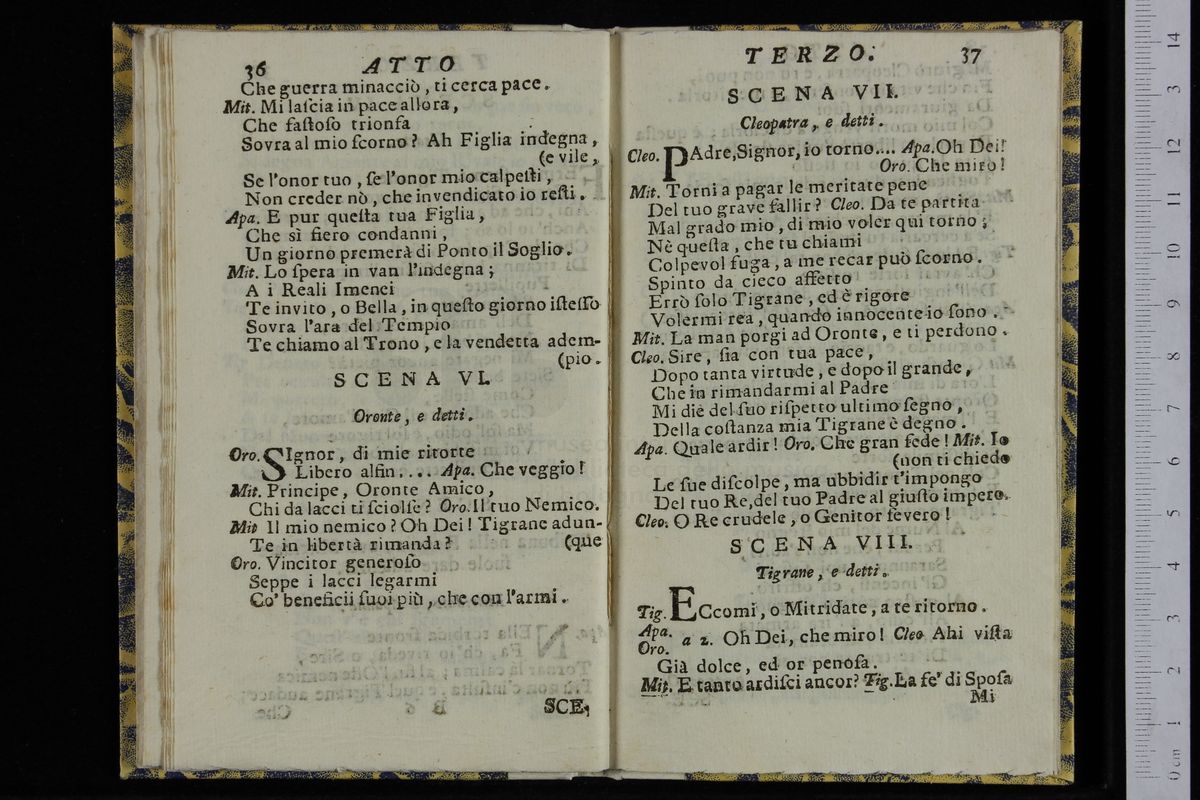 36 ATTO
Che guerra minacciò, ti cerca pace.
Mit. Mi laſcia in pace allora,
Che faſtoſo trionfa
Sovra al mio ſcorno? Ah Figlia indegna,
(e vile,
Se l'onor tuo, ſe l'onor mio calpeſti,
Non creder nò, che invendicato io reſti.
Apa. E pur queſta tua Figlia,
Che sì fiero condanni,
Un giorno premerà di Ponto il Soglio.
Mit. Lo ſpera in van l'indegna;
A i Reali Imenei
Te invito, o Bella, in queſto giorno iſteſſo
Sovra l'ara del Tempio
Te chiamo al Trono, e la vendetta adem-
(pio.
SCENA VI.
Oronte, e detti.
Oro. SIgnor, di mie ritorte
Libero alfin.... Apa. Che veggio!
Mit. Principe, Oronte Amico,
Chi da lacci ti ſciolſe? Oro. Il tuo Nemico.
Mit Il mio nemico? Oh Dei! Tigrane adun-
Te in libertà rimanda? (que
Oro. Vincitor generoſo
Seppe i lacci legarmi
Co' beneficii ſuoi più, che con l'armi.
SCE,
TERZO. 37
SCENA VII.
Cleopatra, e detti.
Cleo. PAdre, Signor, io torno.... Apa. Oh Dei!
Oro. Che miro!
Mit. Torni a pagar le meritate pene
Del tuo grave fallir? Cleo. Da te partita
Mal grado mio, di mio voler qui torno;
Nè queſta, che tu chiami
Colpevol fuga, a me recar può ſcorno.
Spinto da cieco affetto
Errò ſolo Tigrane, ed è rigore
Volermi rea, quando innocente io ſono.
Mit. La man porgi ad Oronte, e ti perdono.
Cleo. Sire, ſia con tua pace,
Dopo tanta virtude, e dopo il grande,
Che in rimandarmi al Padre
Mi diè del ſuo riſpetto ultimo ſegno,
Della coſtanza mia Tigrane è degno.
Apa. Quale ardir! Oro. Che gran fede! Mit. Io
(non ti chiedo
Le ſue diſcolpe, ma ubbidir t'impongo
Del tuo Re, del tuo Padre al giuſto impero.
Cleo. O Re crudele, o Genitor ſevero!
SCENA VIII.
Tigrane, e detti.
Tig. ECcomi, o Mitridate, a te ritorno.
Apa.
Oro. a 2. Oh Dei, che miro! Cleo Ahi viſta
Già dolce, ed or penoſa.
Mit. E tanto ardiſci ancor? Tig. La fe' di Spoſa
Mi